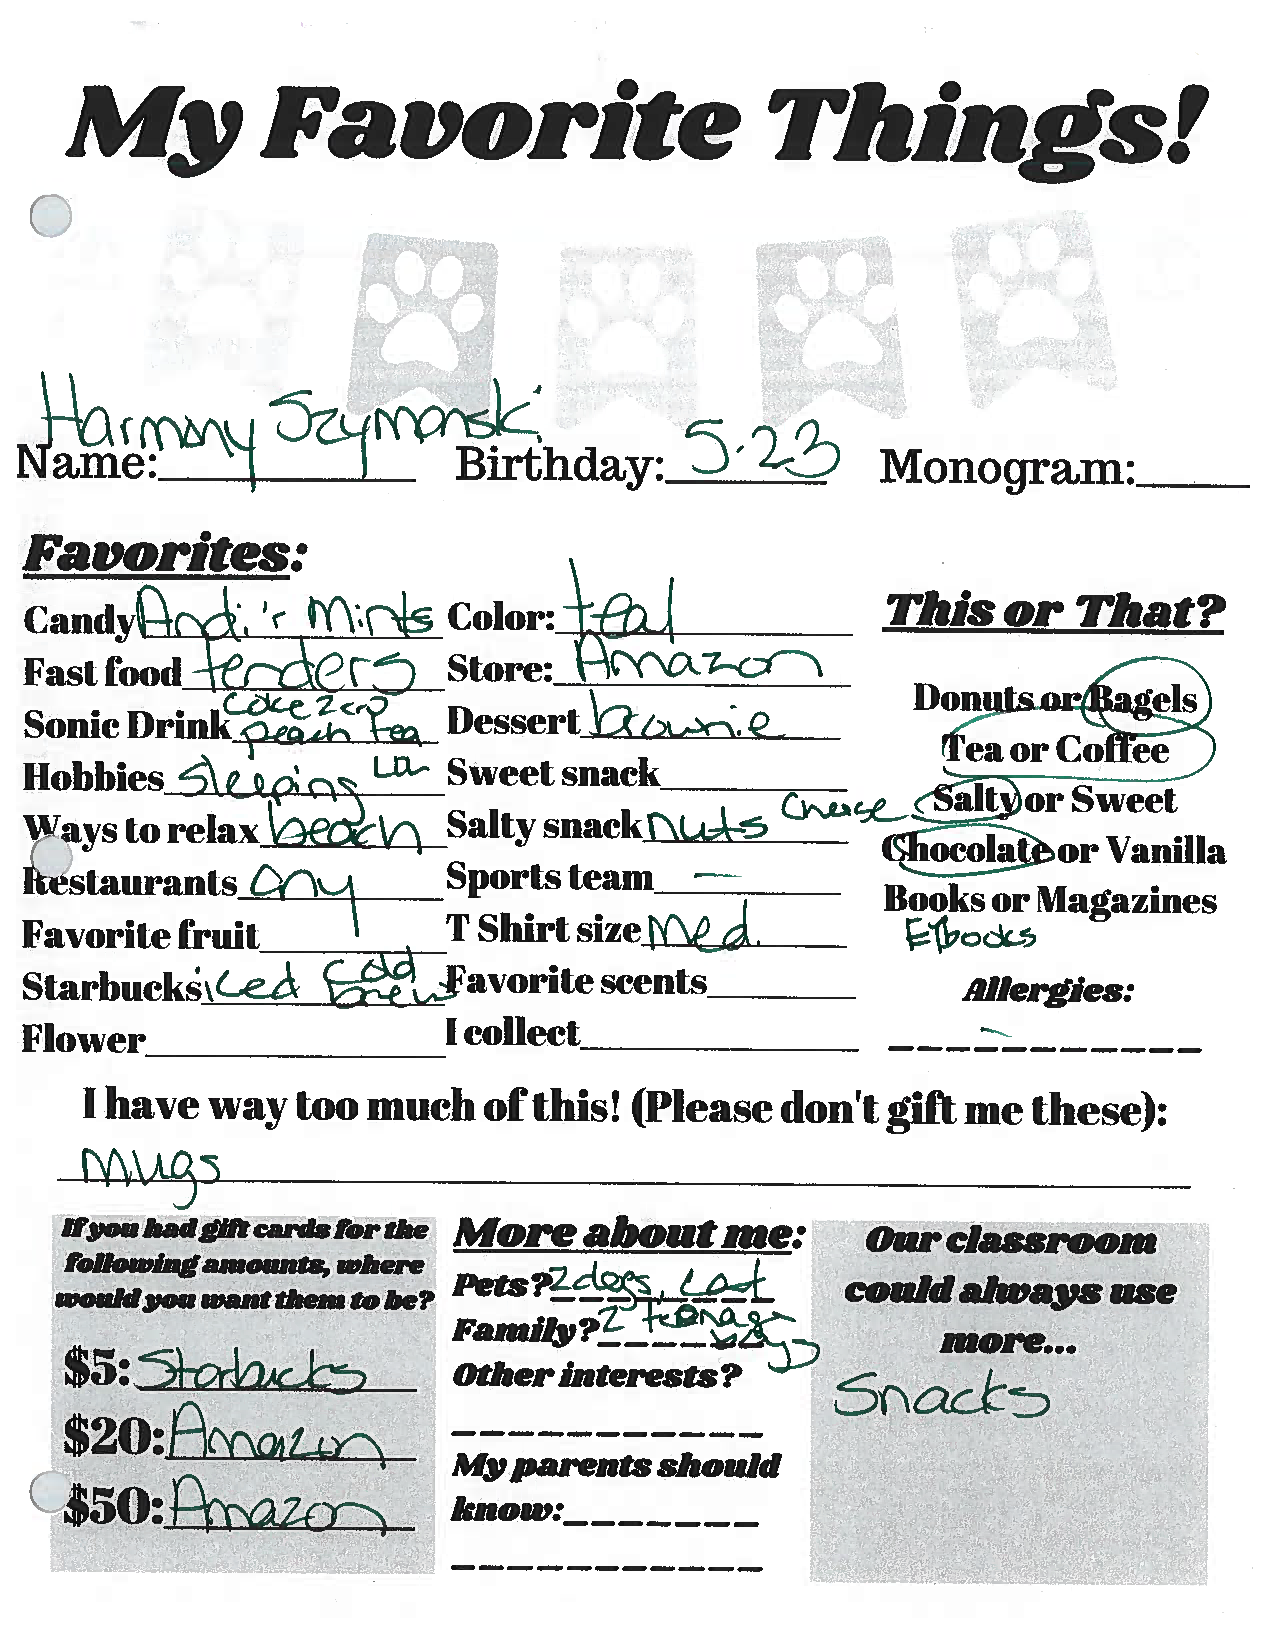 My Favorite Things!
Name: Harmony Szymanski Birthday: 5.23 Monogram:
Favorites:
Candy Andi's Mints Color: teal
Fast food tenders Store: Amazon
Sonic Drink coke zero peach tea Dessert brownie
Hobbies sleeping Sweet snack
Ways to relax beach Salty snack nuts cheese
Restaurants any Sports team —
Favorite fruit T Shirt size Med.
Starbucks iced cold brew Favorite scents
Flower I collect
This or That?
Donuts or Bagels
Tea or Coffee
Salty or Sweet
Chocolate or Vanilla
Books or Magazines
Ebooks
Allergies:
—
I have way too much of this! (Please don't gift me these):
mugs
If you had gift cards for the
following amounts, where
would you want them to be?
$5: Starbucks
$20: Amazon
$50: Amazon
More about me:
Pets? 2 dogs, 1 cat
Family? 2 teenage boys
Other interests?
My parents should
know:
Our classroom
could always use
more...
Snacks